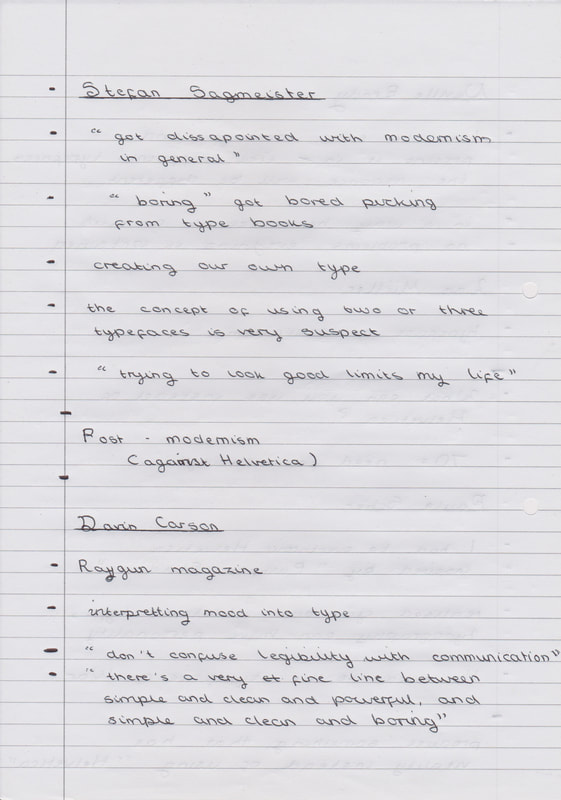 - Stefan Sagmeister
- "got dissapointed with modernism
in general"
- "boring" got bored picking
from type books
- creating our own type
- the concept of using two or three
typefaces is very suspect
- "trying to look good limits my life"
-
Post - modernism
(against Helvetica)
-
Davin Carson
- Raygun magazine
- interpretting mood into type
- "don't confuse legibility with communication"
- "there's a very et fine line between
simple and clean and powerful, and
simple and clean and boring"